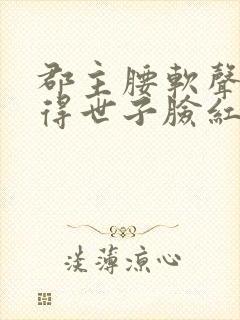 郡主腰軟聲
得世子臉紅
淡薄涼心